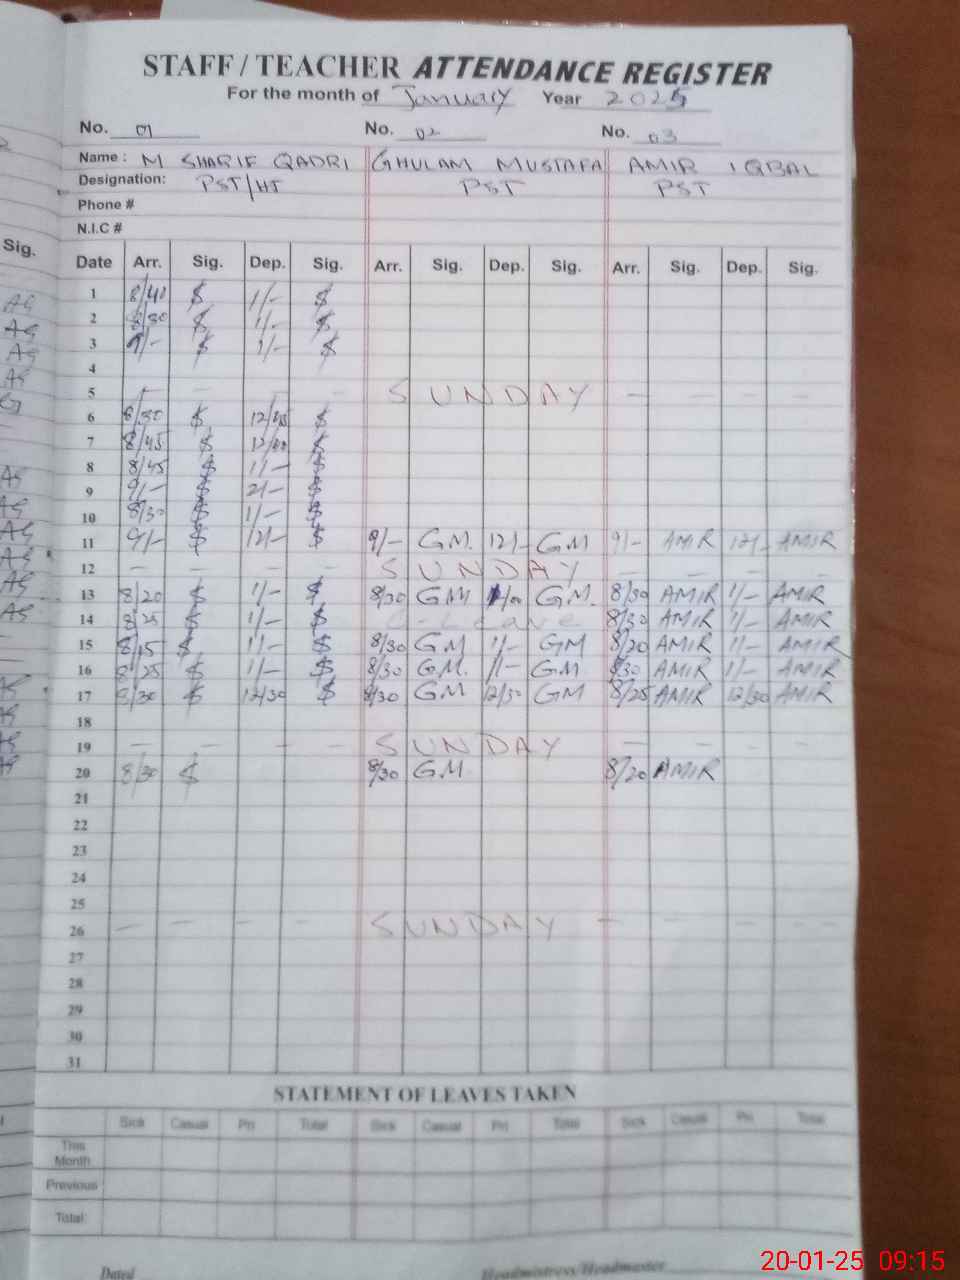 STAFF / TEACHER ATTENDANCE REGISTER
For the month of January Year 2025
No. 01 No. 02 No. 03
Name : M SHARIF QADRI GHULAM MUSTAFA AMIR IQBAL
Designation: PST/HT PST PST
Phone #
N.I.C #
Sig.
Date Arr. Sig. Dep. Sig. Arr. Sig. Dep. Sig. Arr. Sig. Dep. Sig.
1 8/40 $ 1/- $
2 8/30 $ 1/- $
3 9/- $ 1/- $
4
5 - - - - SUNDAY - - - -
6 8/50 $ 12/45 $
7 8/45 $ $
8 8/45 $ 1/- $
9 9/- $ 2/- $
10 8/30 $ 1/- $
11 9/- $ 12/- $ 9/- G.M. 12/- GM 9/- AMIR 12/- AMIR
12 - - - - SUNDAY - - - -
13 8/20 $ 1/- $ 8/30 GM 1/00 G.M. 8/30 AMIR 1/- AMIR
14 8/25 $ 1/- $ C-Leave 8/30 AMIR 1/- AMIR
15 8/15 $ 1/- $ 8/30 GM 1/- GM 8/20 AMIR 1/- AMIR
16 8/25 $ 1/- $ 8/30 G.M. 1/- GM 8/30 AMIR 1/- AMIR
17 8/30 $ 12/30 $ 8/30 GM 12/30 GM 8/25 AMIR 12/30 AMIR
18
19 - - - - SUNDAY - - - -
20 8/30 $ 8/30 G.M 8/20 AMIR
21
22
23
24
25
26 - - - - SUNDAY - - - -
27
28
29
30
31
STATEMENT OF LEAVES TAKEN
Sick Casual Pri Total Sick Casual Pri Total Sick Casual Pri Total
This Month
Previous
Total:
Dated Headmistress/Headmaster
20-01-25 09:15